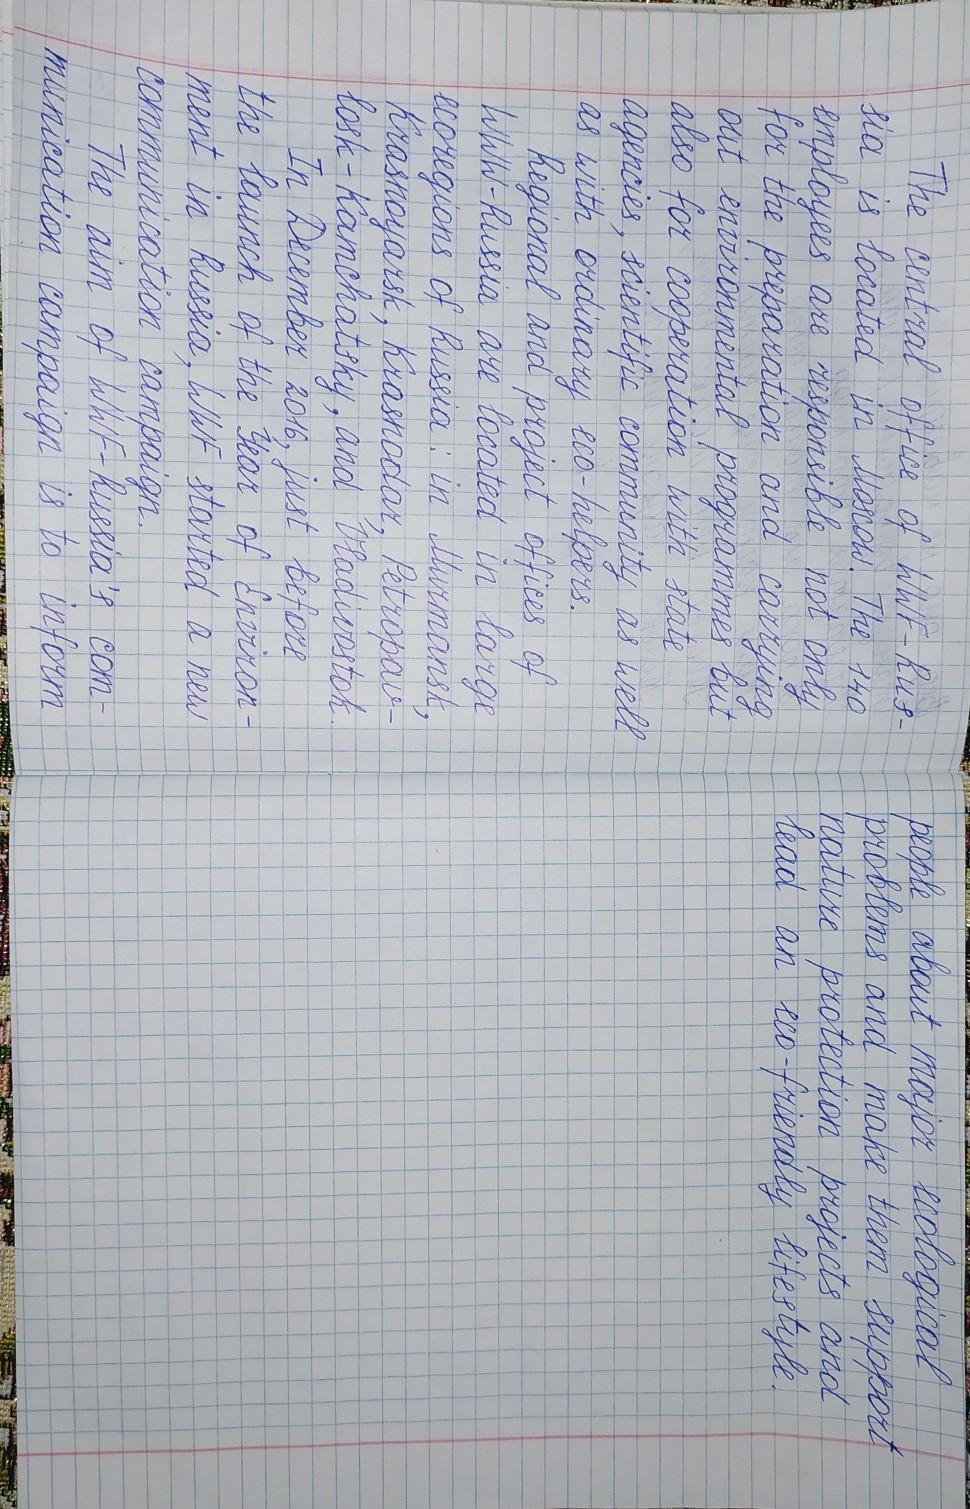 The central office of WWF-Rus-
sia is located in Moscow. The 140
employees are responsible not only
for the preparation and carrying
out environmental programmes but
also for cooperation with state
agencies, scientific community as well
as with ordinary eco-helpers.
Regional and project offices of
WWW-Russia are located in large
ecoregions of Russia: in Murmansk,
Krasnoyarsk, Krasnodar, Petropav-
losk-Kamchatsky, and Vladivostok.
In December 2016, just before
the launch of the Year of Environ-
ment in Russia, WWF started a new
communication campaign.
The aim of WWF-Russia's com-
munication campaign is to inform
people about major ecological
problems and make them support
nature protection projects and
lead an eco-friendly lifestyle.